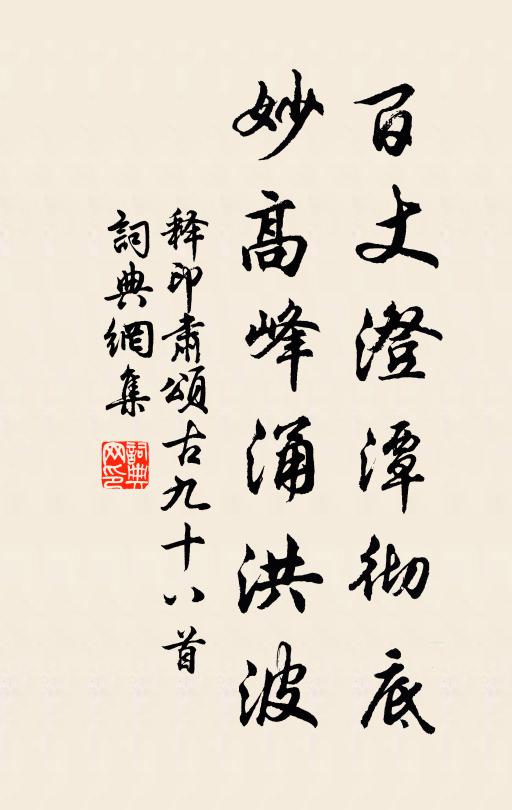 百丈澄潭彻底
妙高峰涌洪波
释印肃颂古九十八首
詞典網集
詞典网印